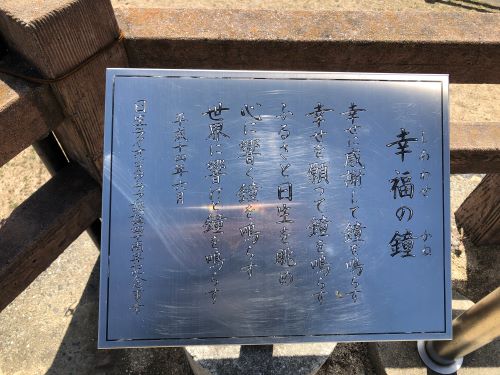 しあわせ かね
幸福の鐘
幸せに感謝して鐘を鳴らす
幸せを願って鐘を鳴らす
ふるさと日隆を眺め
心に響く鐘を鳴らす
世界に響けと鐘を鳴らす
平成十四年十一月